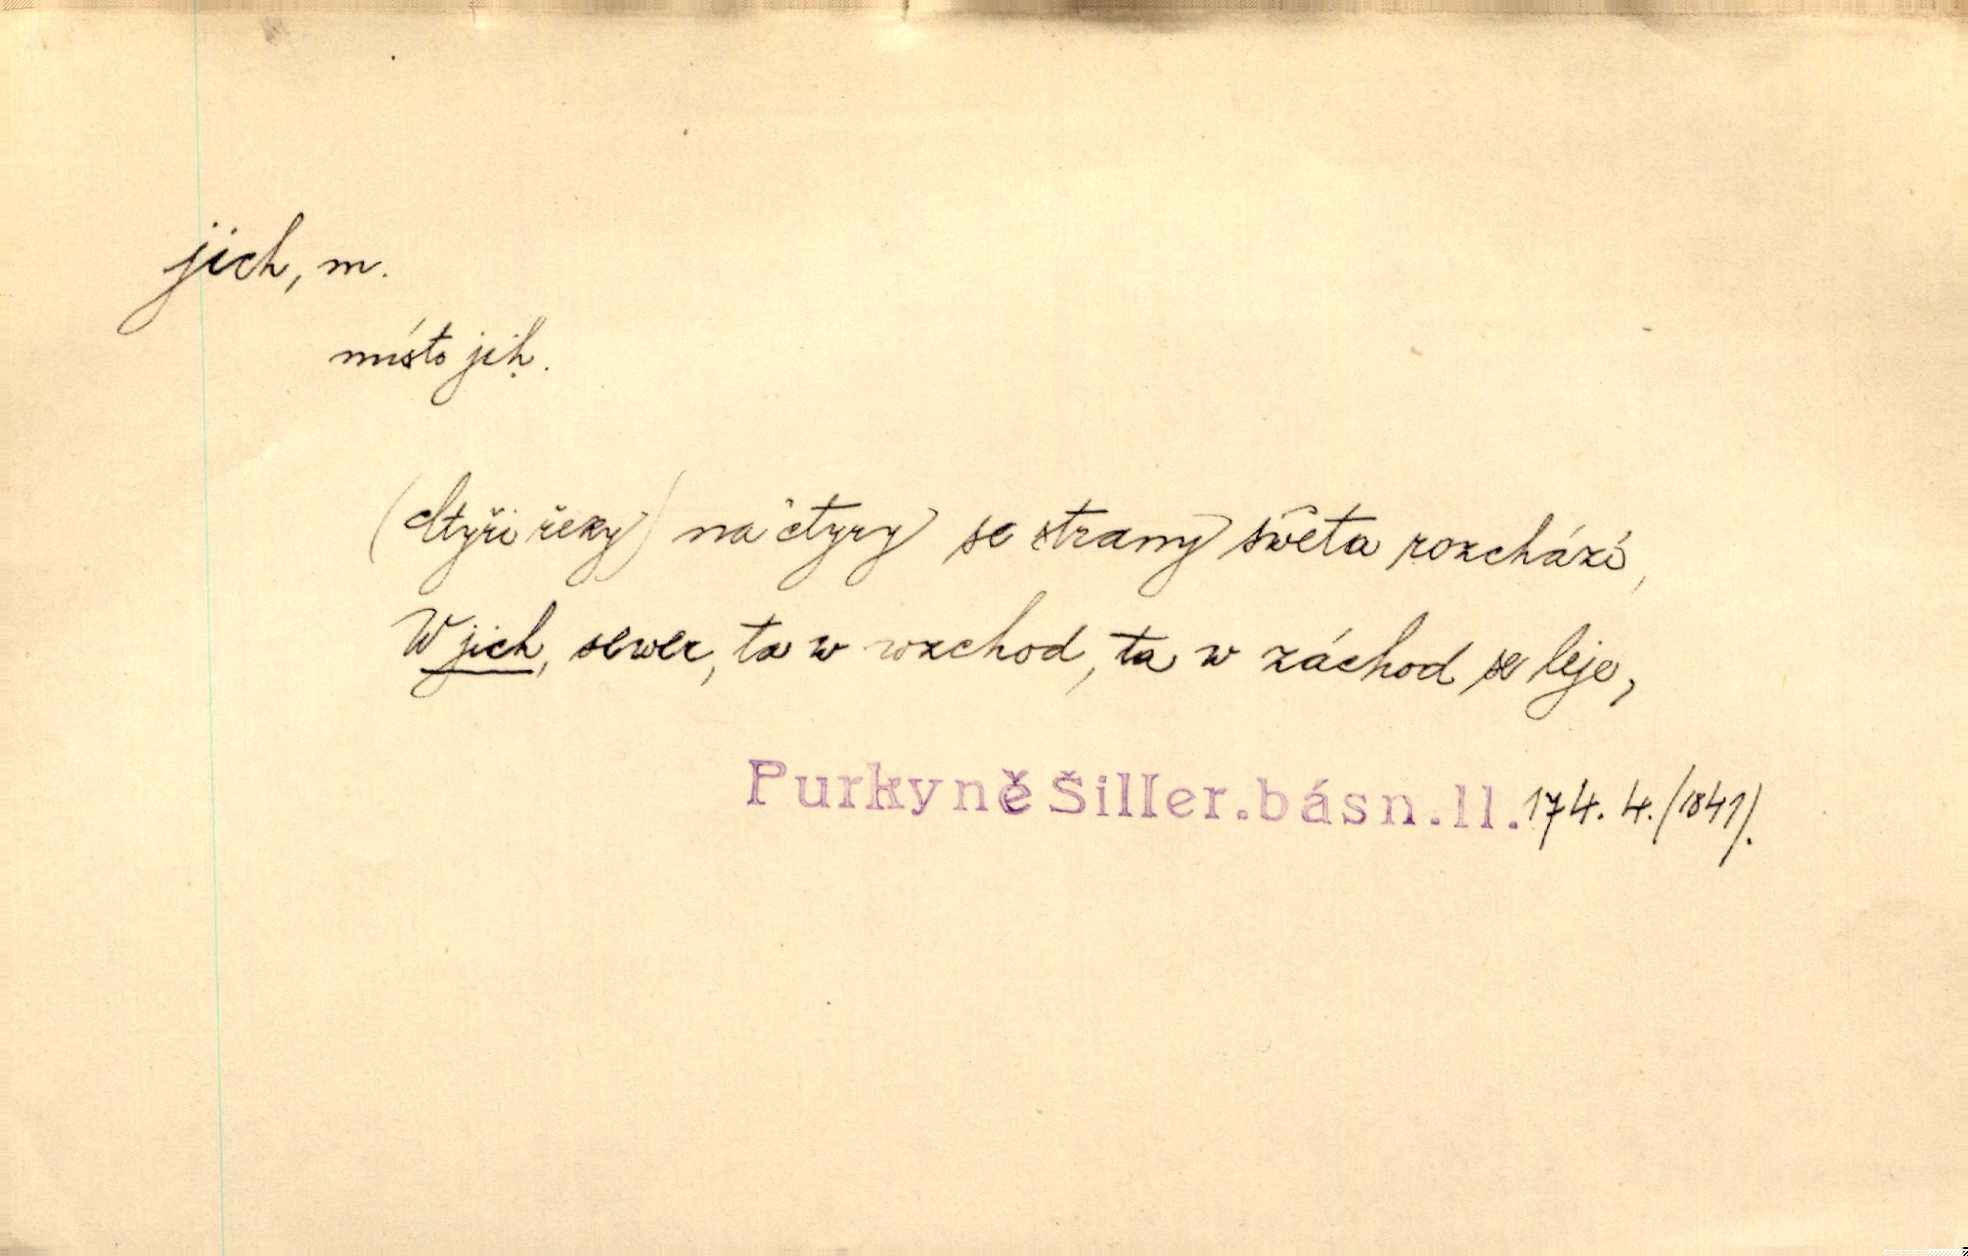 jich, m.
místo jih.
(čtyři řeky) na čtyry se strany swěta rozchází,
W jich, sewer, ta w wzchod, ta w záchod se leje,
Purkyně Šiller. básn. II. 174. 4. (1841).